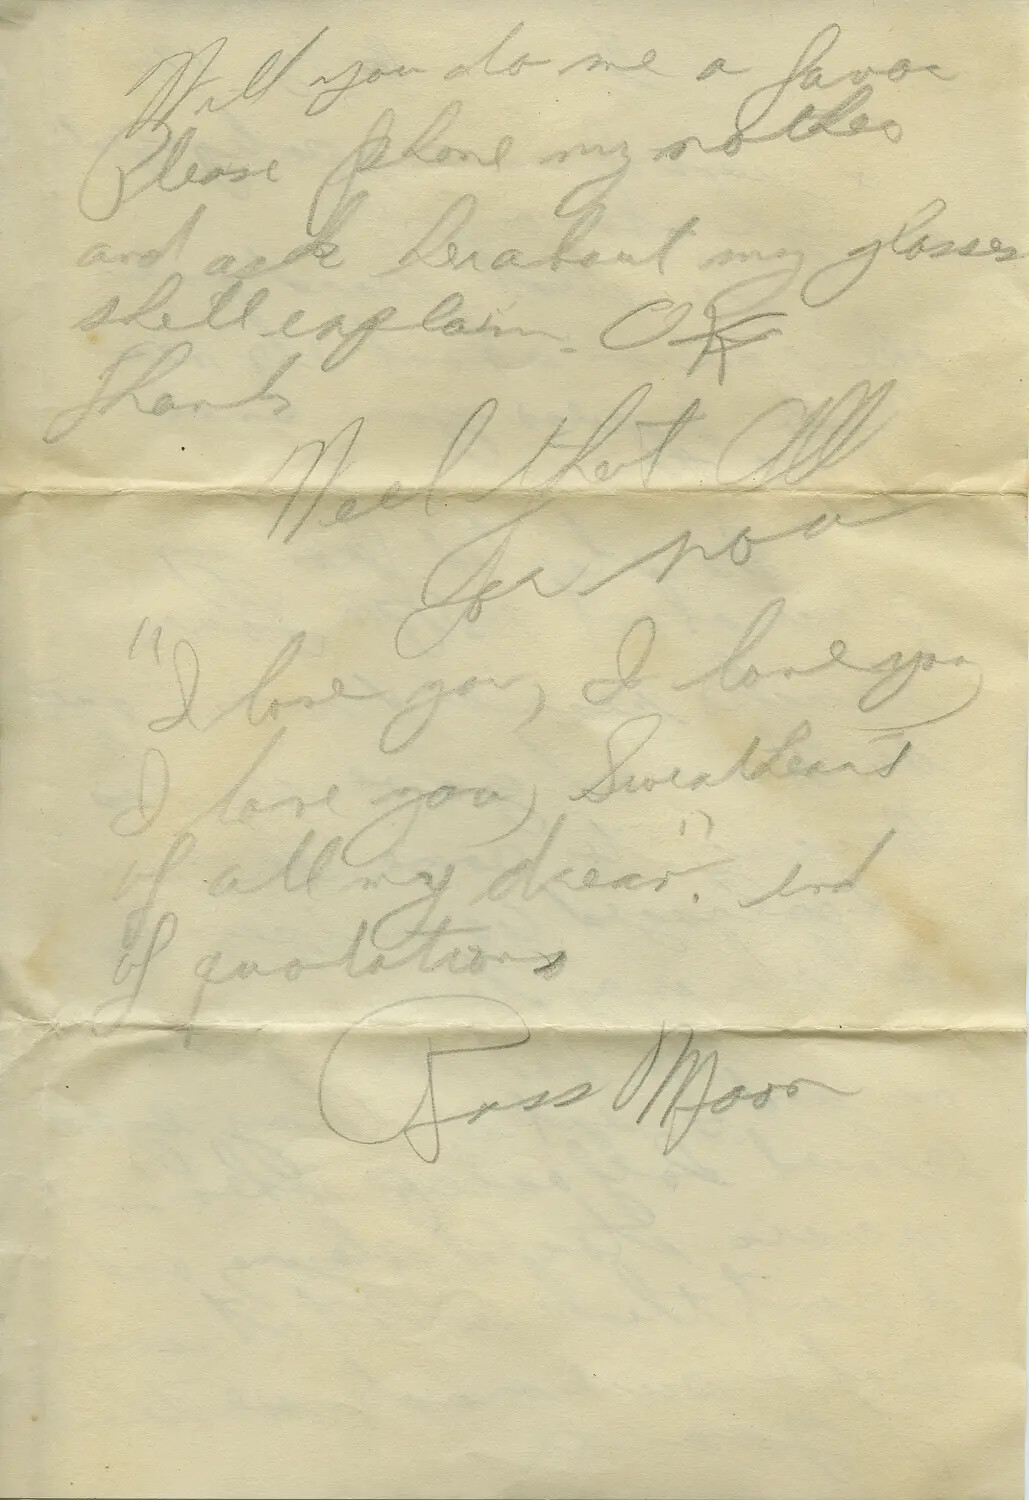 Will you do me a favor
Please phone my mother
and ask her about my glasses
shell explain. OK
Thanks
Well that All
for now
"I love you, I love you
I love you, Sweatheart
of all my dream". end
of quotations
Russ Moon